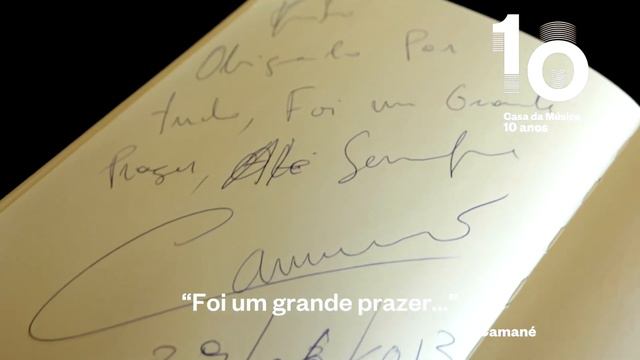 Obrigado Por
tudo, Foi um Grande
Prazer, Até Sempre
Camané
10
Casa da Música
10 anos
“Foi um grande prazer...”
Camané